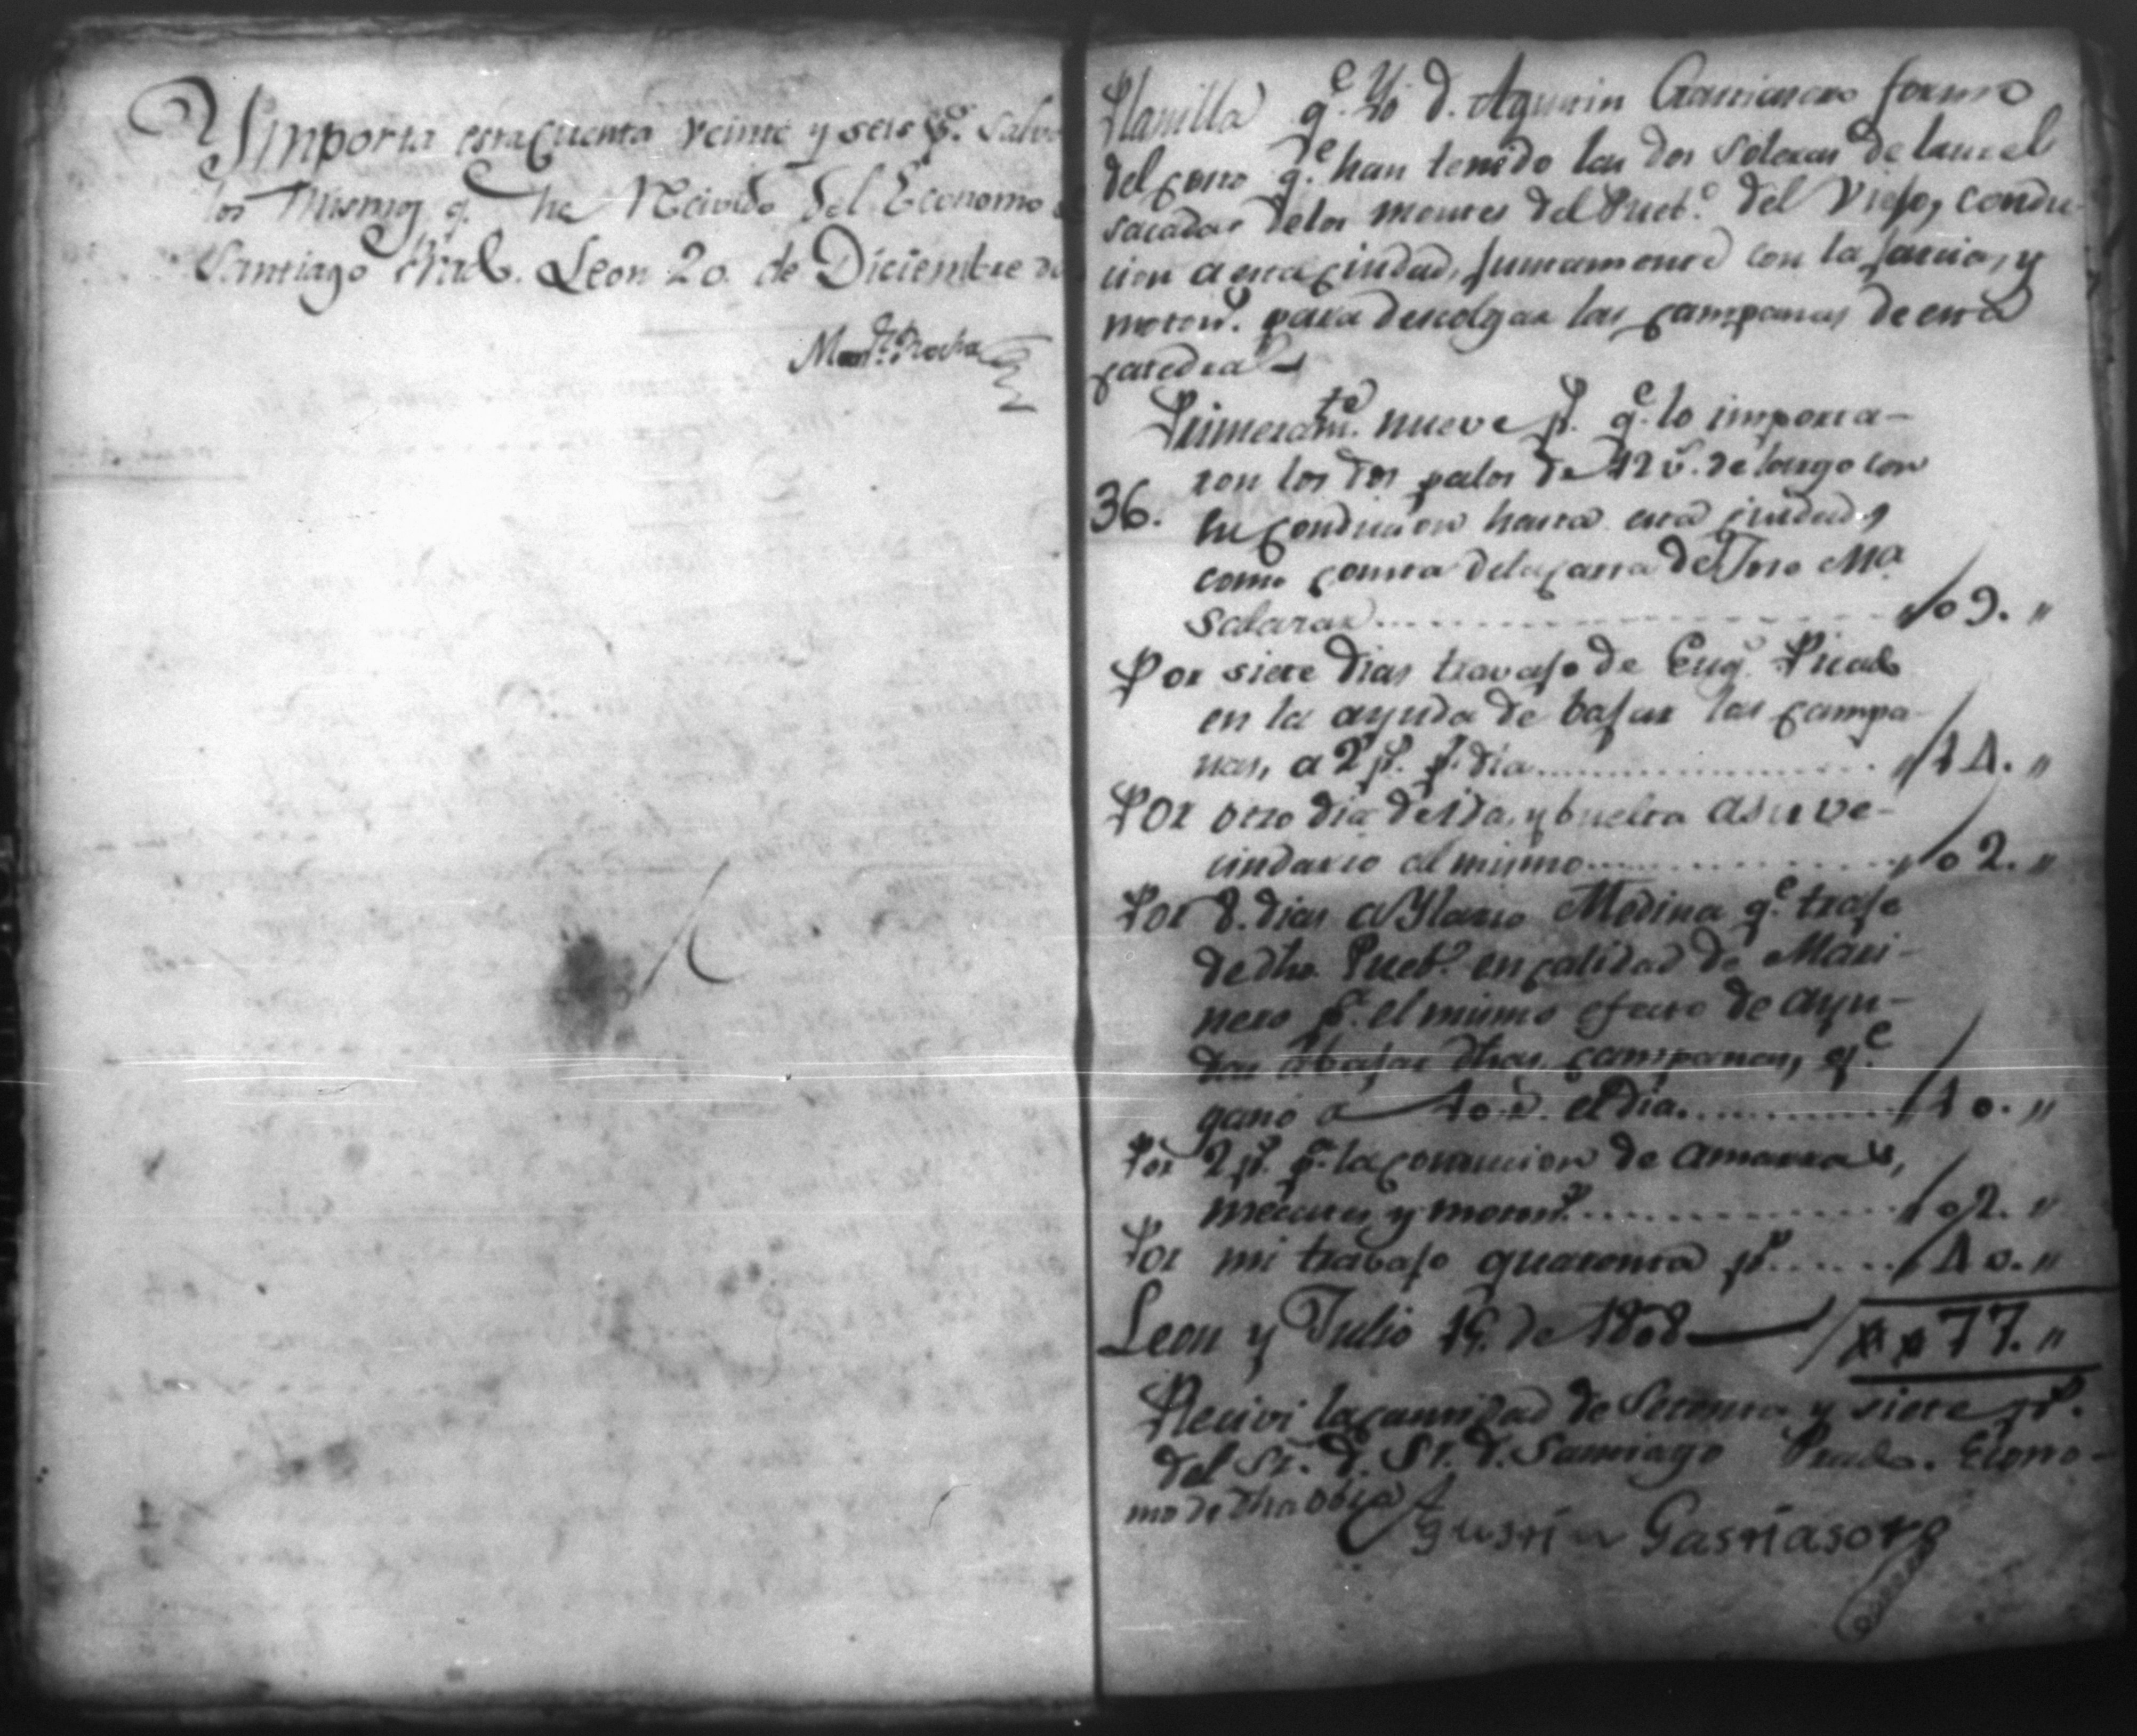 Ymporta esta Cuenta veinte y seis p.s salvo
los mismos q.e he Recivido del Economo
Santiago Prado. Leon 20. de Diciembre de
Man.l Rocha
Planilla q.e Yo D. Agustin formo
del costo q.e han tenido las dos soleras de laurel
sacadas de los montes del Pueb.o del Viejo, condu-
cion a esta Ciudad, juntamente con la jarcia, y
moton.s para descolgar las campanas de esta
catedral
Primeram.te nueve p.s q.e lo importa-
ron los dos palos de 12 v.s de largo con
36.
su conducion hasta esta ciudad, y
como consta de la carta de Jose Ma.
Salazar ......... " 09. "
Por siete dias travajo de Eug.o Picado
en la ayuda de bajar las campa-
nas, a 2 p.s p.r dia ......... " 14. "
Por otro dia de ida, y buelta a su ve-
cindario al mismo ......... " 02. "
Por 8. dias a Ylario Medina q.e traje
de dho. Pueb.o en calidad de Mari-
nero p.a el mismo efecto de ayu-
dar a bajar dhas. campanas, q.e
ganó a 10 r. el dia. ......... " 10. "
Por 2 p.s p.r la de amarras,
mecates y moton.s ......... " 02. "
Por mi trabajo quarenta p.s ...... " 40. "
Leon y Julio 19. de 1808 77. "
Recivi la cantidad de Setenta y siete p.s
del Sr. D. Sr. D. Santiago Prado. Econo-
mo de dha obra
Agustin Gastiasoro